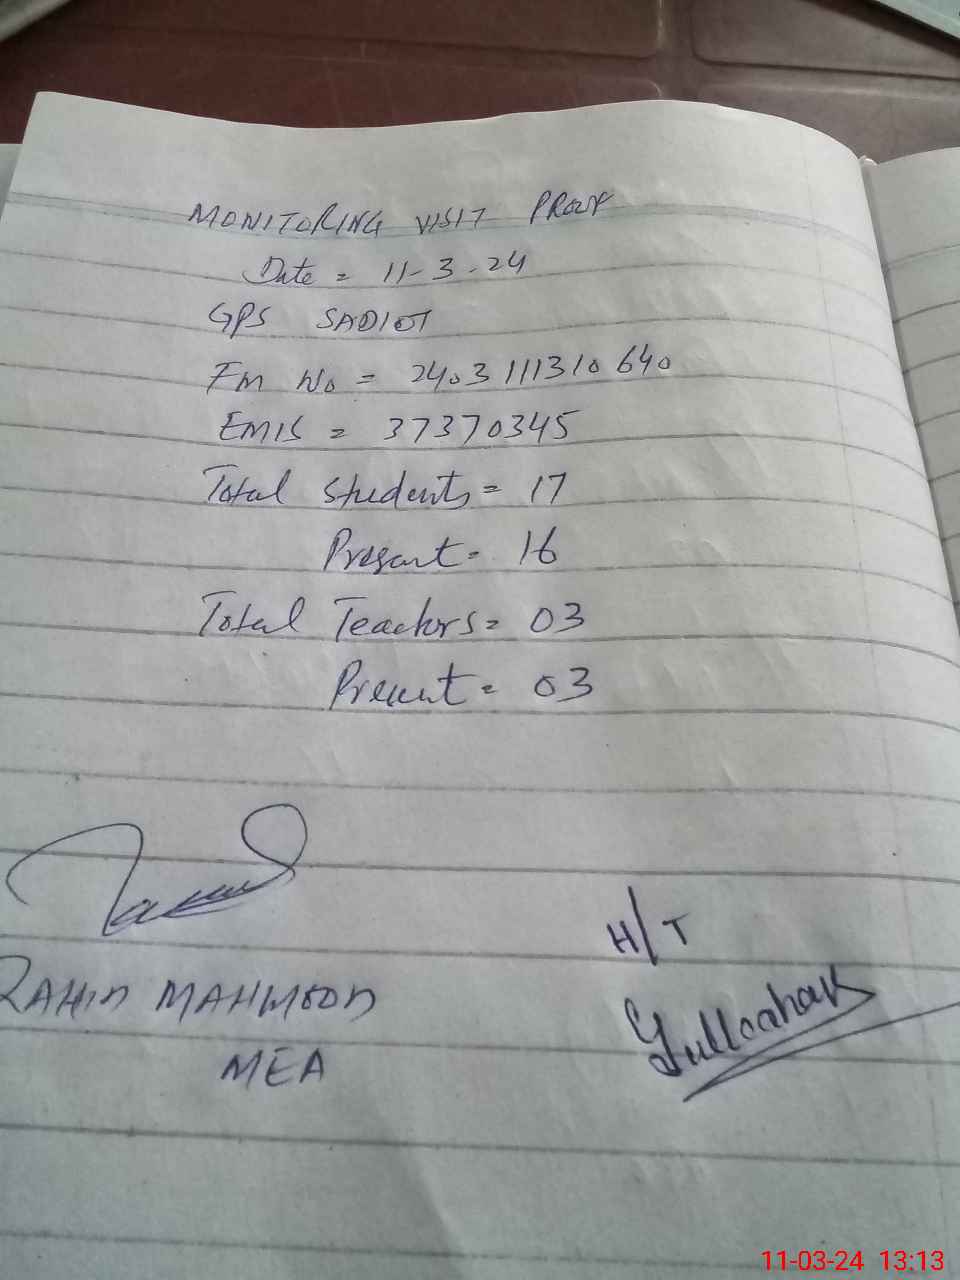 MONITORING VISIT PROOF
Date = 11-3-24
GPS SADIOT
Fm No = 2403111310640
EMIS = 37370345
Total Students = 17
Present = 16
Total Teachers = 03
Present = 03
MAHMOOD
MEA
H/T
11-03-24 13:13